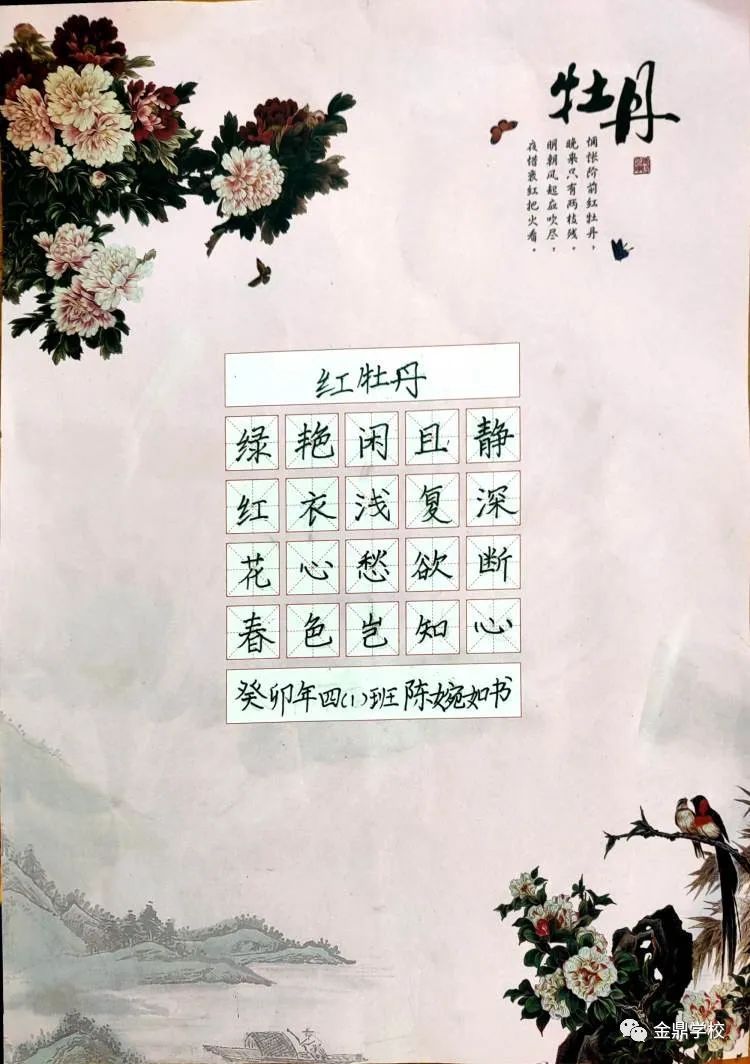 牡丹
惆怅阶前红牡丹，
晚来只有两枝残。
明朝风起应吹尽，
夜惜衰红把火看。
红牡丹
绿艳闲且静
红衣浅复深
花心愁欲断
春色岂知心
癸卯年四(1)班陈婉如书
金鼎学校